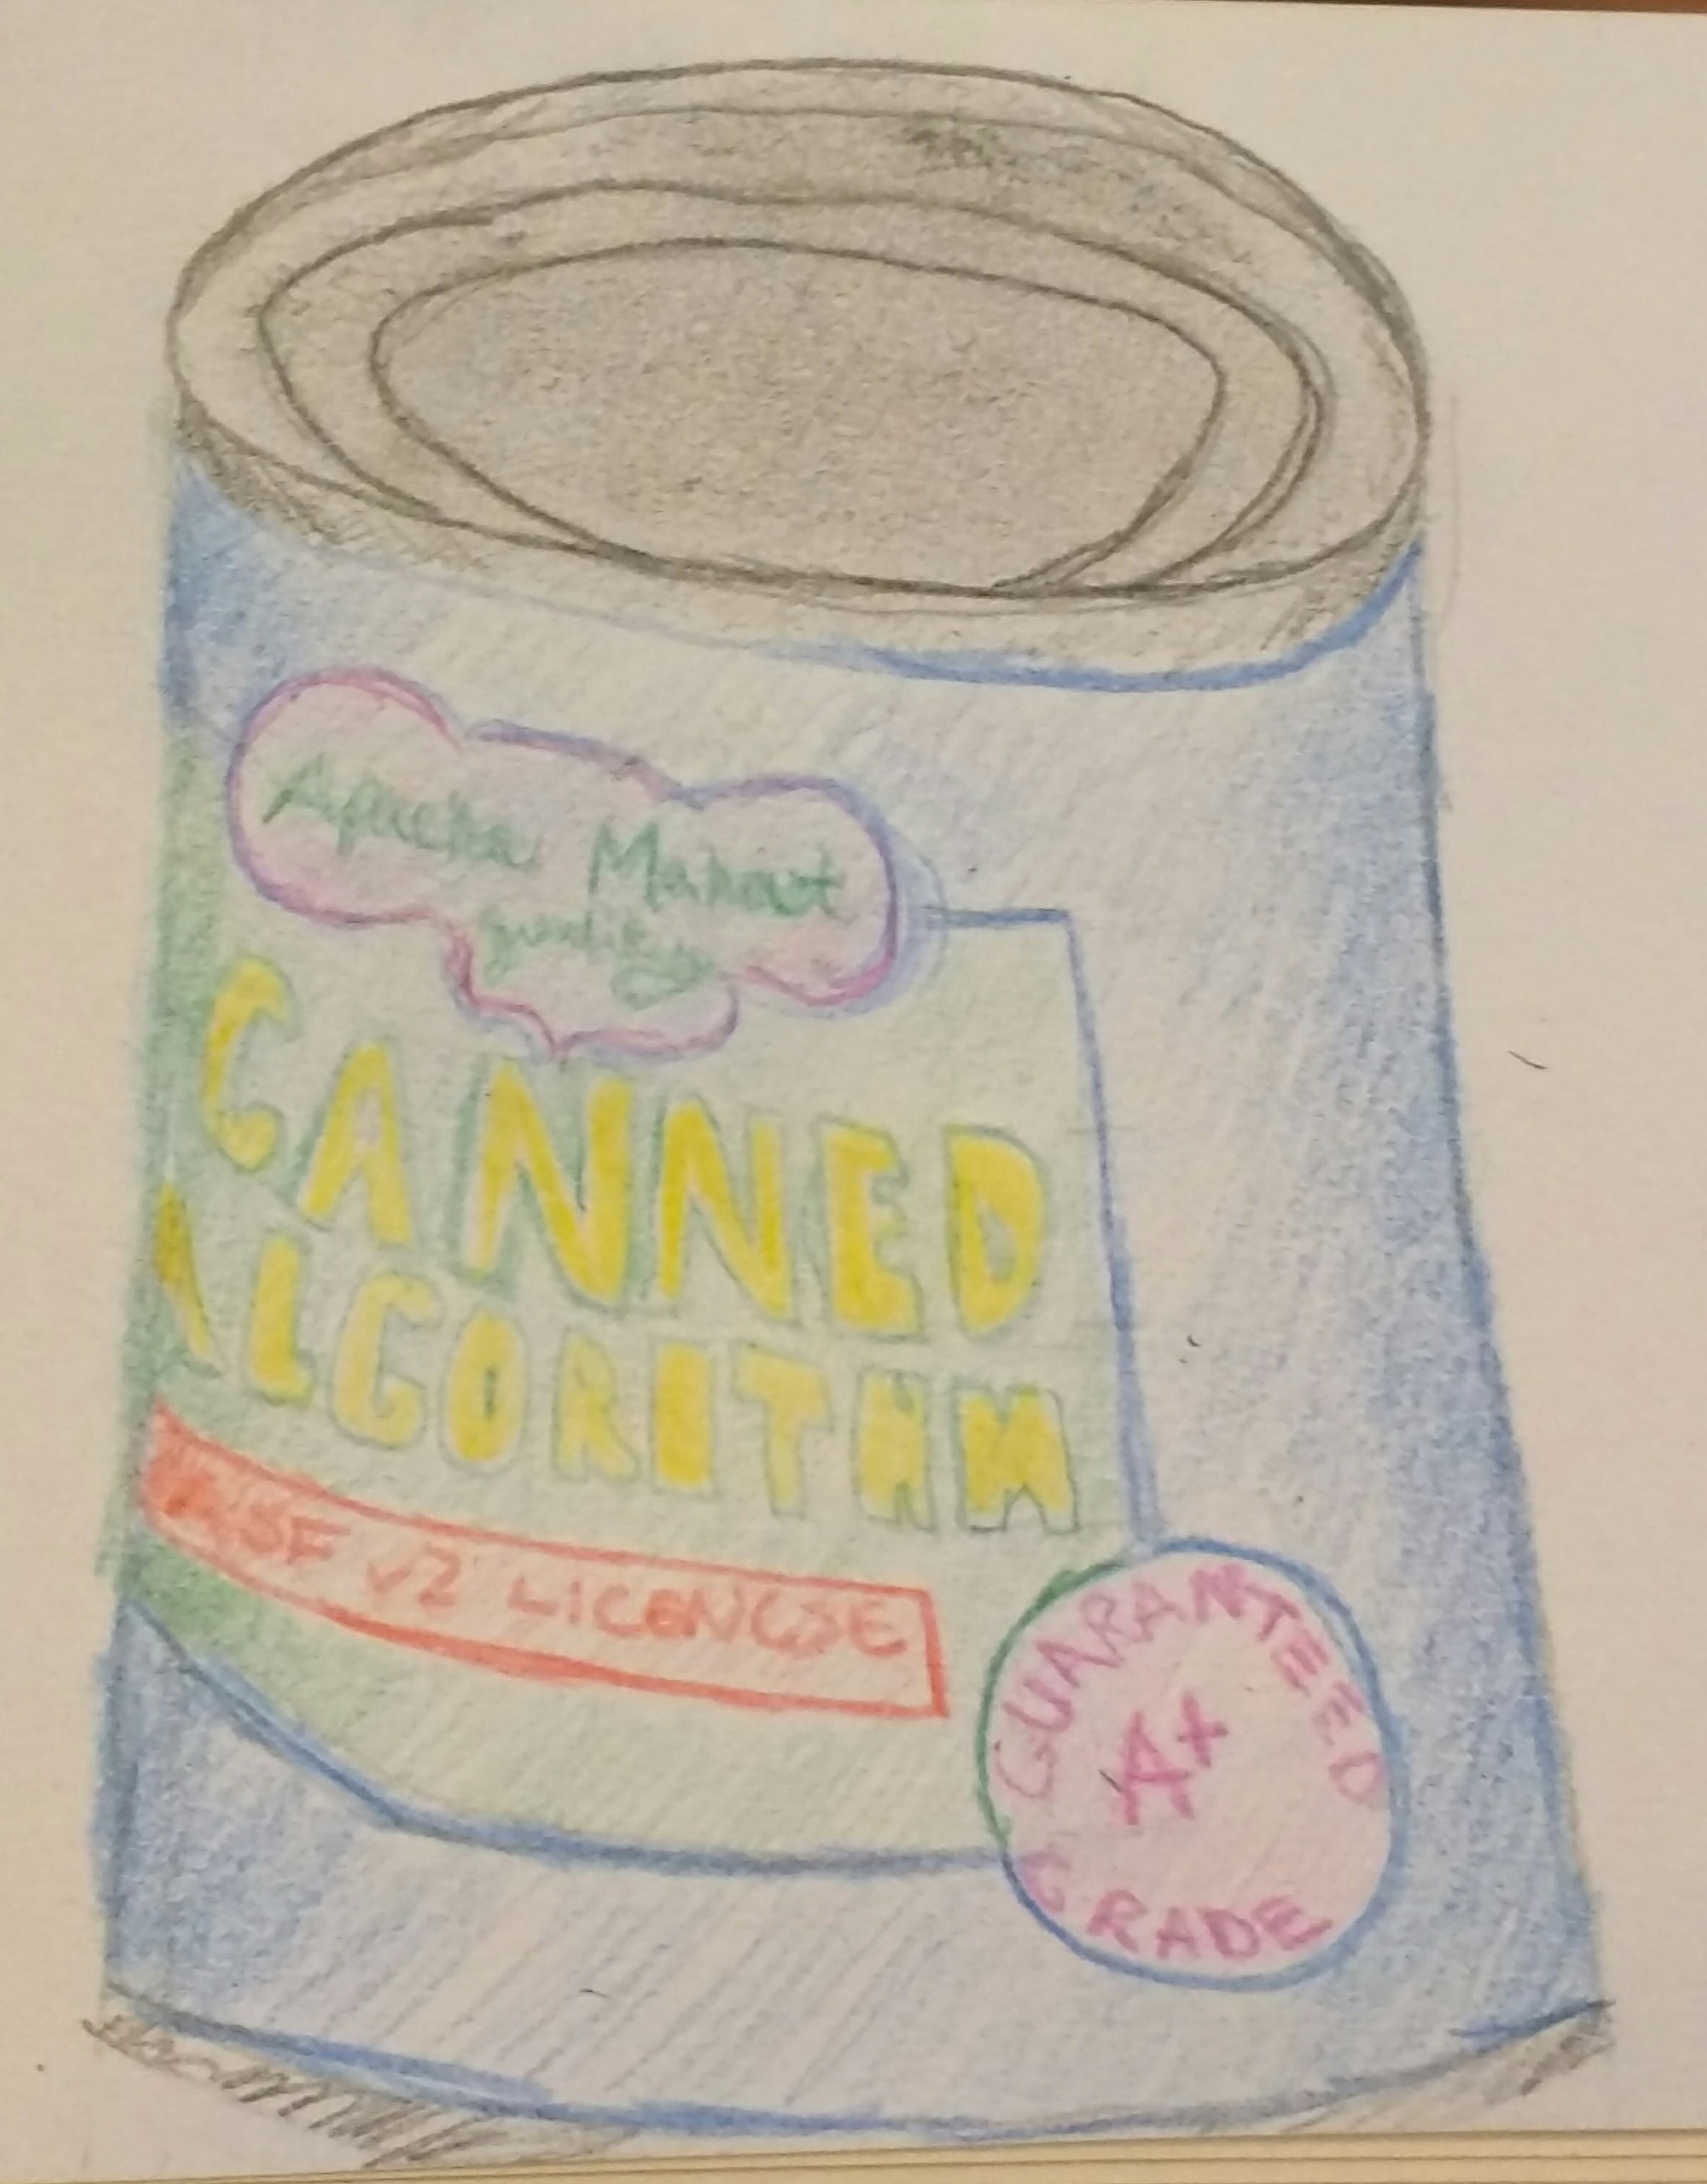 Apache Mahout
quality
CANNED
ALGORITHM
ASF v2 LICENCSE
GUARANTEED
A+
GRADE